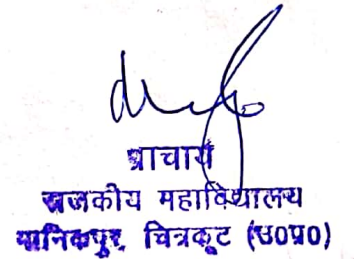 प्राचार्य
राजकीय महाविद्यालय
मानिकपुर, चित्रकूट (उ0प्र0)